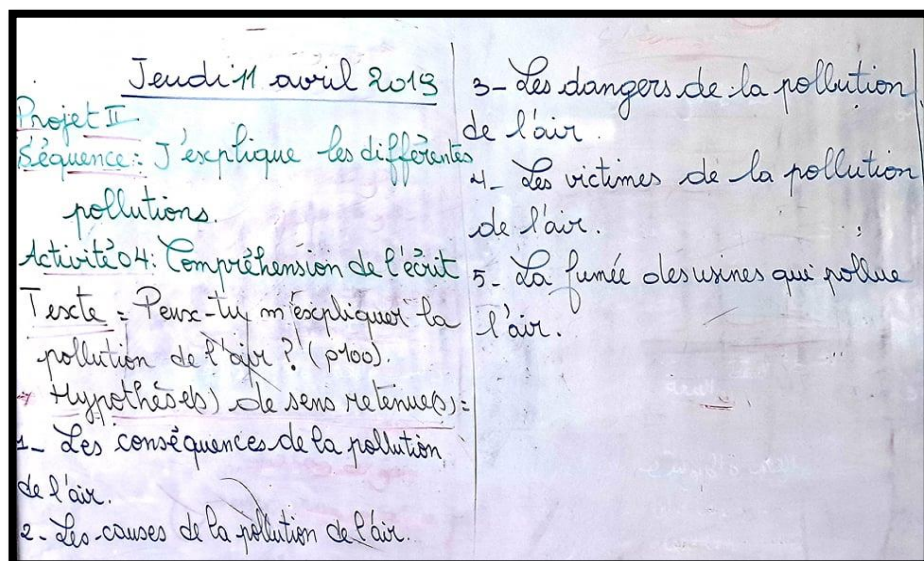 Jeudi 11 avril 2019
Projet II
Séquence : J'explique les différentes
pollutions.
Activité 04 : Compréhension de l'écrit
Texte : Peux-tu m'expliquer la
pollution de l'air ? (p100).
→ Hypothèse(s) de sens retenue(s) :
1- Les conséquences de la pollution
de l'air.
2- Les causes de la pollution de l'air.
3- Les dangers de la pollution
de l'air.
4- Les victimes de la pollution
de l'air.
5- La fumée des usines qui pollue
l'air.